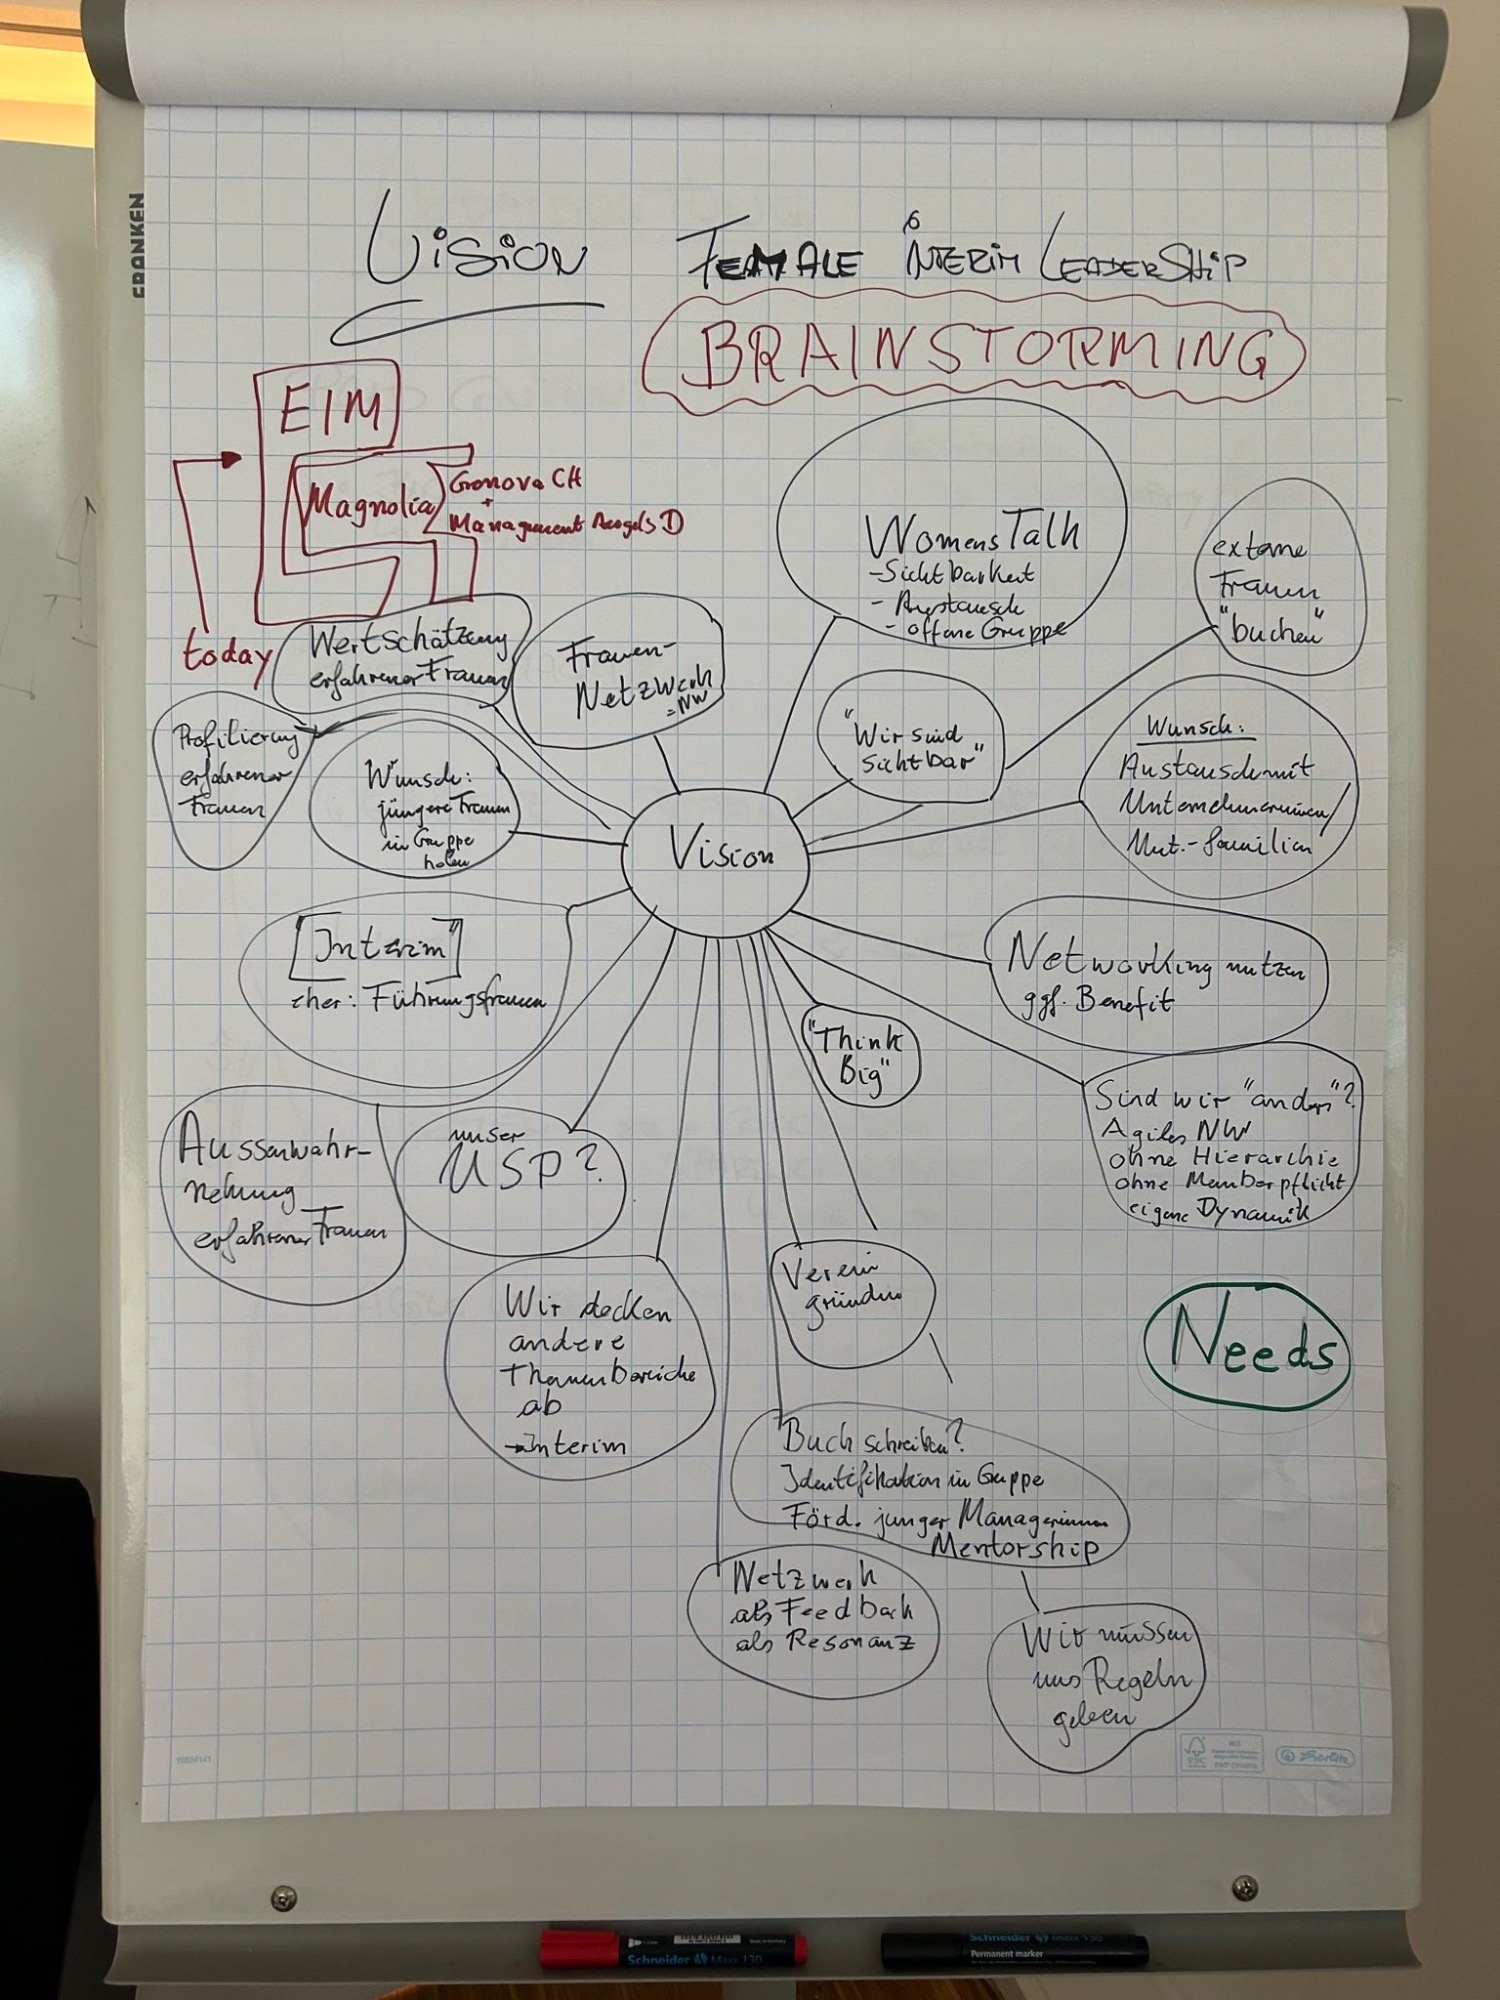 FRANKEN
Vision
FEMALE INTERIM LEADERSHIP
BRAINSTORMING
EIM
Magnolia
Gronova CH
+
Management Angels D
today
WomensTalk
- Sichtbarkeit
- Austausch
- offene Gruppe
externe
Frauen
"buchen"
Wertschätzung
erfahrener Frauen
Frauen-
Netzwerk
= NW
"Wir sind
sichtbar"
Wunsch:
Austausch mit
Unternehmerinnen/
Unt.-familien
Profilierung
erfahrener
Frauen
Wunsch:
jüngere Frauen
in Gruppe
holen
Vision
["Interim"]
eher: Führungsfrauen
Networking nutzen
ggf. Benefit
"Think
Big"
Sind wir "anders"?
Agiles NW
ohne Hierarchie
ohne Memberpflicht
eigene Dynamik
Aussenwahr-
nehmung
erfahrener Frauen
unser
USP?
Wir decken
andere
Themenbereiche
ab
→Interim
Verein
gründen
Needs
Buch schreiben?
Identifikation in Gruppe
Förd. junger Managerinnen
Mentorship
Netzwerk
als Feedback
als Resonanz
Wir müssen
uns Regeln
geben
FSC
Herlitz
Schneider Maxx 130
Schneider Maxx 130
Permanent marker